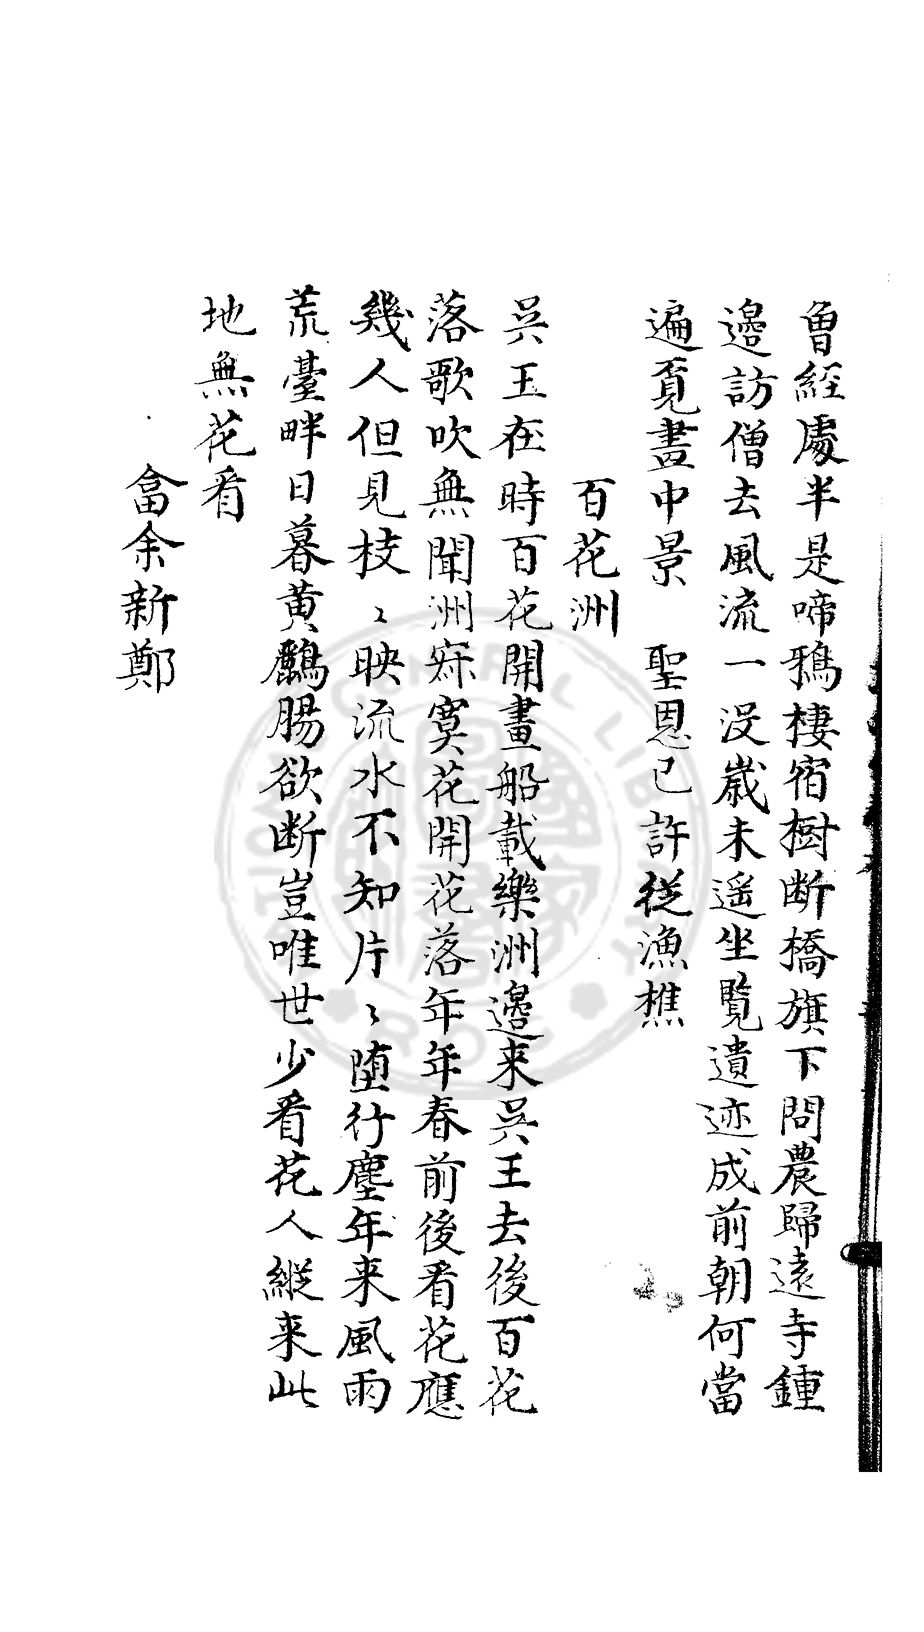 曾經處半是啼鴉棲宿樹断橋旗下問農歸遠寺鍾
邉訪僧去風流一没歲未遥坐覽遺迹成前朝何當
遍覔畫中景　聖恩已許従漁樵
百花洲
吴王在時百花開畫船載樂洲邉来吴王去後百花
落歌吹無聞洲寂寞花開花落年年春前後看花應
幾人但見枝〻映流水不知片〻堕行塵年来風雨
荒臺畔日暮黄鸝腸欲断豈唯世少看花人縱来此
地無花看
畣余新鄭